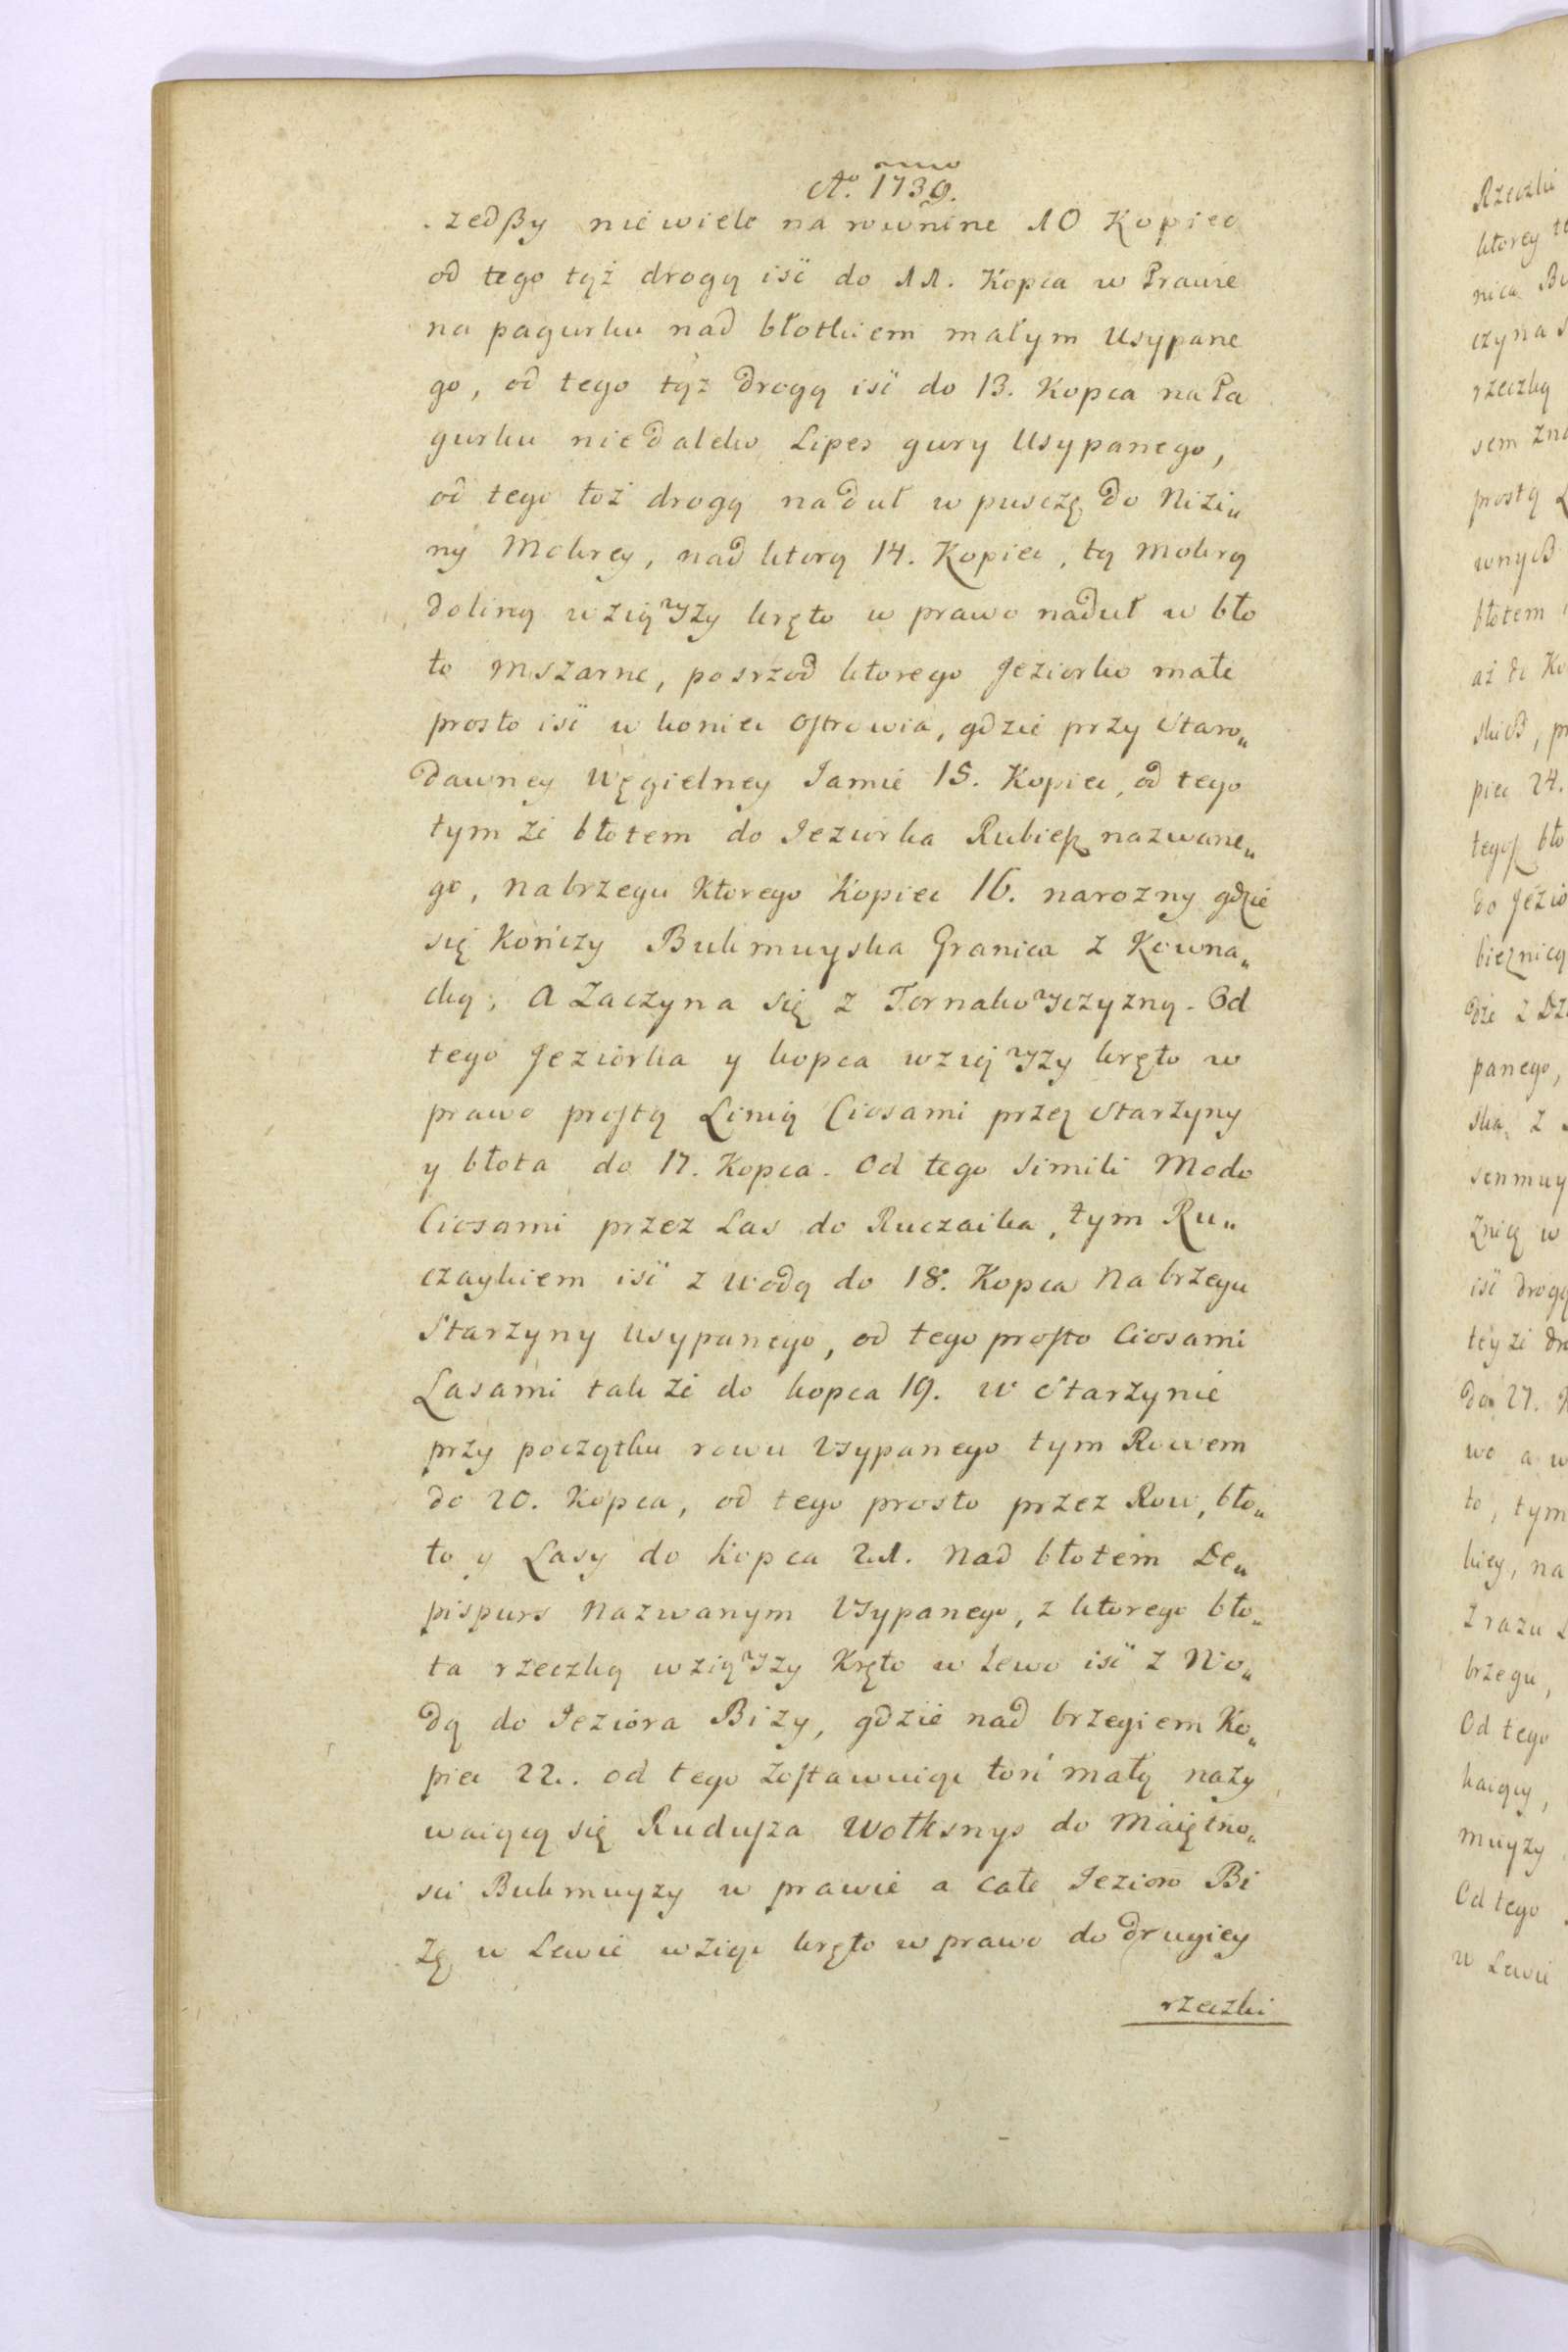 Aº. 1739.
zedßy niewiele na rownine 10 Kopiec
od tego tąż drogą iść do 11. Kopca w Prawie
na pagurku nad błotkiem małym Usypane
go, od tego tąż drogą iść do 13. Kopca na Pa
gurku niedaleko Lipes gury Usypanego,
od tego toż drogą naduł w pusczę do Nizi„
ny Mokrey, nad ktorą 14. Kopiec, tą mokrą
doliną wziąwszy kręto w prawo naduł w bło
to mszarne, posrzod ktorego Jeziorko małe
prosto iść w koniec Ostrowia, gdzie przy Staro„
dawney Węgielney Jamie 15. Kopiec, od tego
tym że błotem do Jeziorka Rubież nazwane„
go, na brzegu Ktorego Kopiec 16. narozny gdzie
się Kończy Bukmuyska Granica z Kowna„
cką, a Zaczyna się z Tornakowsczyzną. Od
tego Jeziórka y kopca wziąwszy kręto w
prawo prostą Linią Ciosami przez Starzyny
y błota do 17. Kopca. Od tego Simili Modo
Ciosami przez Las do Ruczaika, tym Ru„
czaykiem iść z wodą do 18. Kopca Na brzegu
Starzyny Usypanego, od tego prosto Ciosami
Lasami tak że do kopca 19. w Starzynie
przy początku rowu Usypanego tym Rowem
do 20. Kopca, od tego prosto przez Row, bło„
to y Lasy do Kopca 21. Nad błotem De„
pispurs Nazwanym Usypanego, z ktorego bło„
ta rzeczką wziąwszy Kręto w Lewo iść z Wo„
dą do Jezióra Bizy, gdzie nad brzegiem Ko„
piec 22. od tego Zostawuiąc toń małą nazy
waiącą się Rudusza Wotksnys do Maiętno„
sci Bukmuyzy w prawie a całe Jezioro Bi
zę w Lewie wziąc kręto w prawo do drugiey
rzeczki